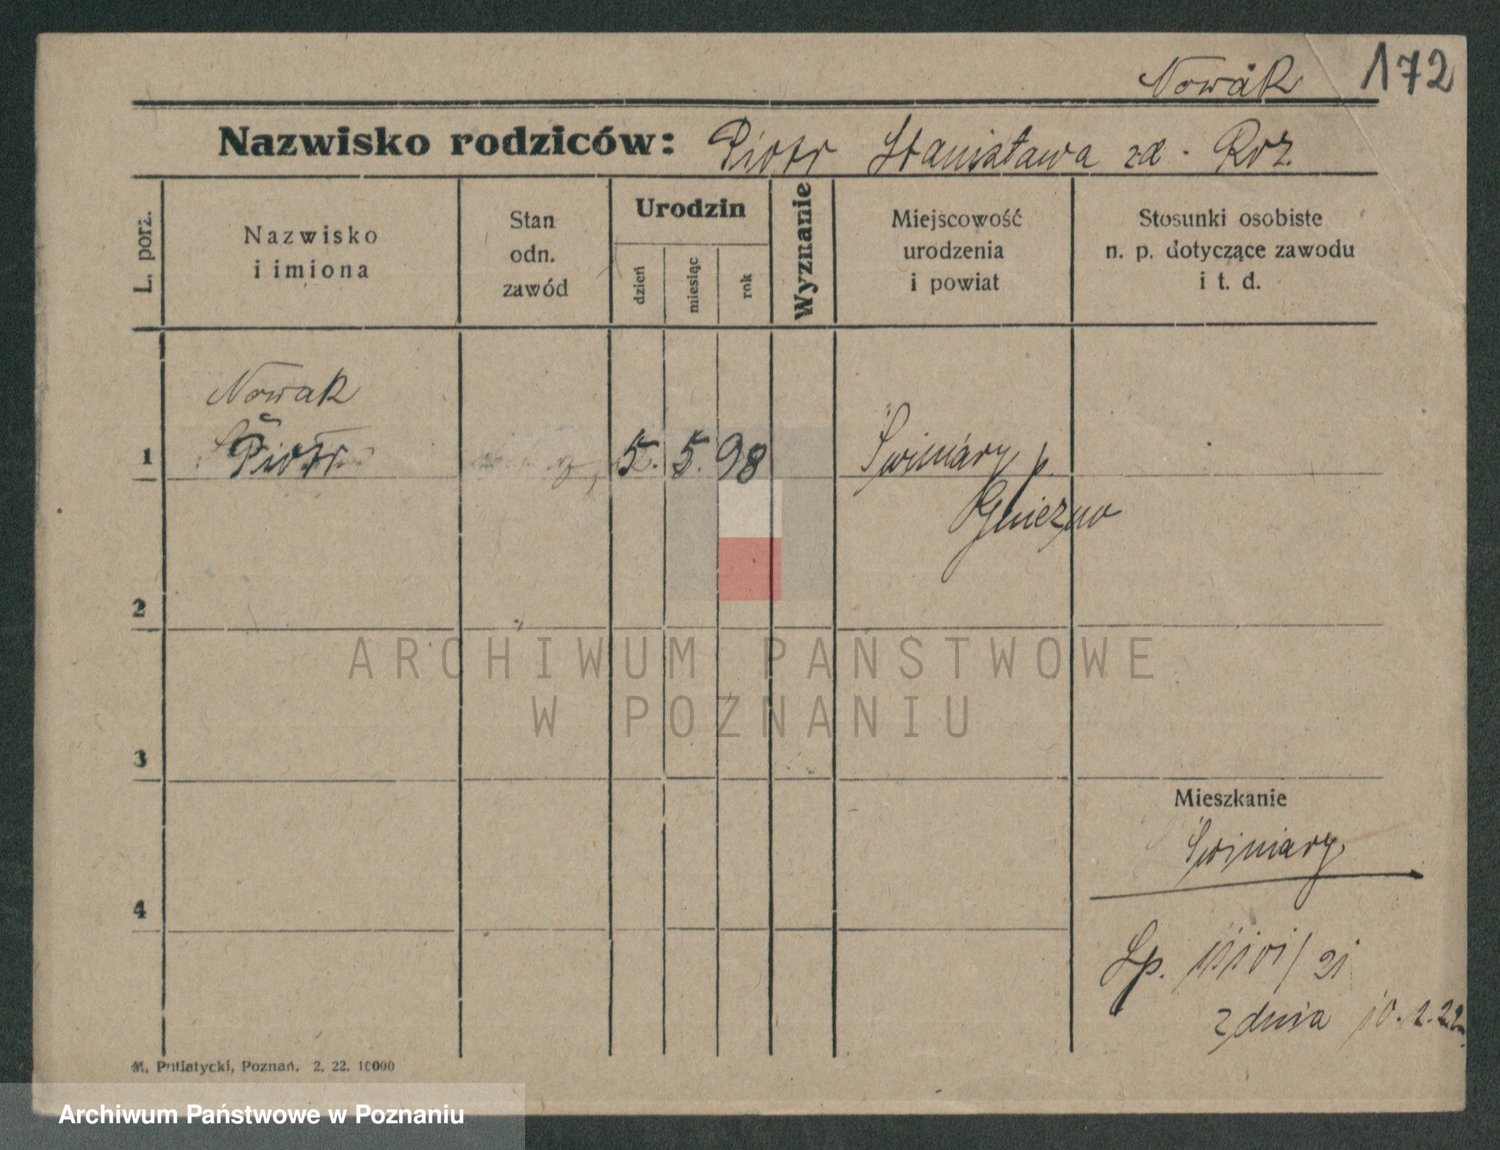 172
Nowak
Nazwisko rodziców: Piotr Stanisława zd. Roz.
L. porz.
Nazwisko i imiona
Stan odn. zawód
Urodzin
dzień
miesiąc
rok
Wyznanie
Miejscowość urodzenia i powiat
Stosunki osobiste n. p. dotyczące zawodu i t. d.
Nowak
1 Piotr 5. 5. 98 Swiniary p.
Gniezno
2
ARCHIWUM PAŃSTWOWE
W POZNANIU
3
Mieszkanie
Swiniary
4
Lp. / 21
z dnia 10.1.22
M. Putiatycki, Poznań. 2. 22. 10000
Archiwum Państwowe w Poznaniu